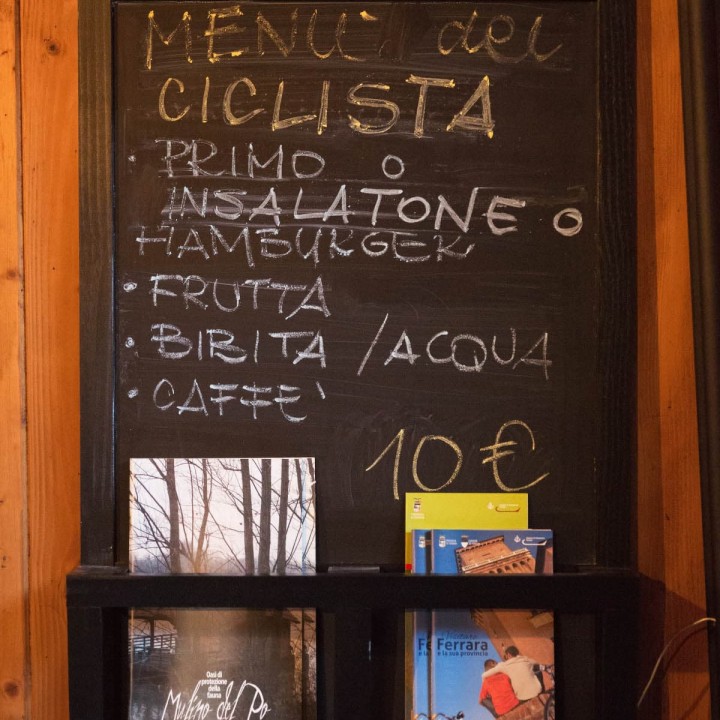 MENU` del
CICLISTA
· PRIMO o
INSALATONE o
HAMBURGER
· FRUTTA
· BIBITA / ACQUA
· CAFFE`
10 €
Oasi di
protezione
della
fauna
Mulino del Po
Ferrara
e la sua provincia